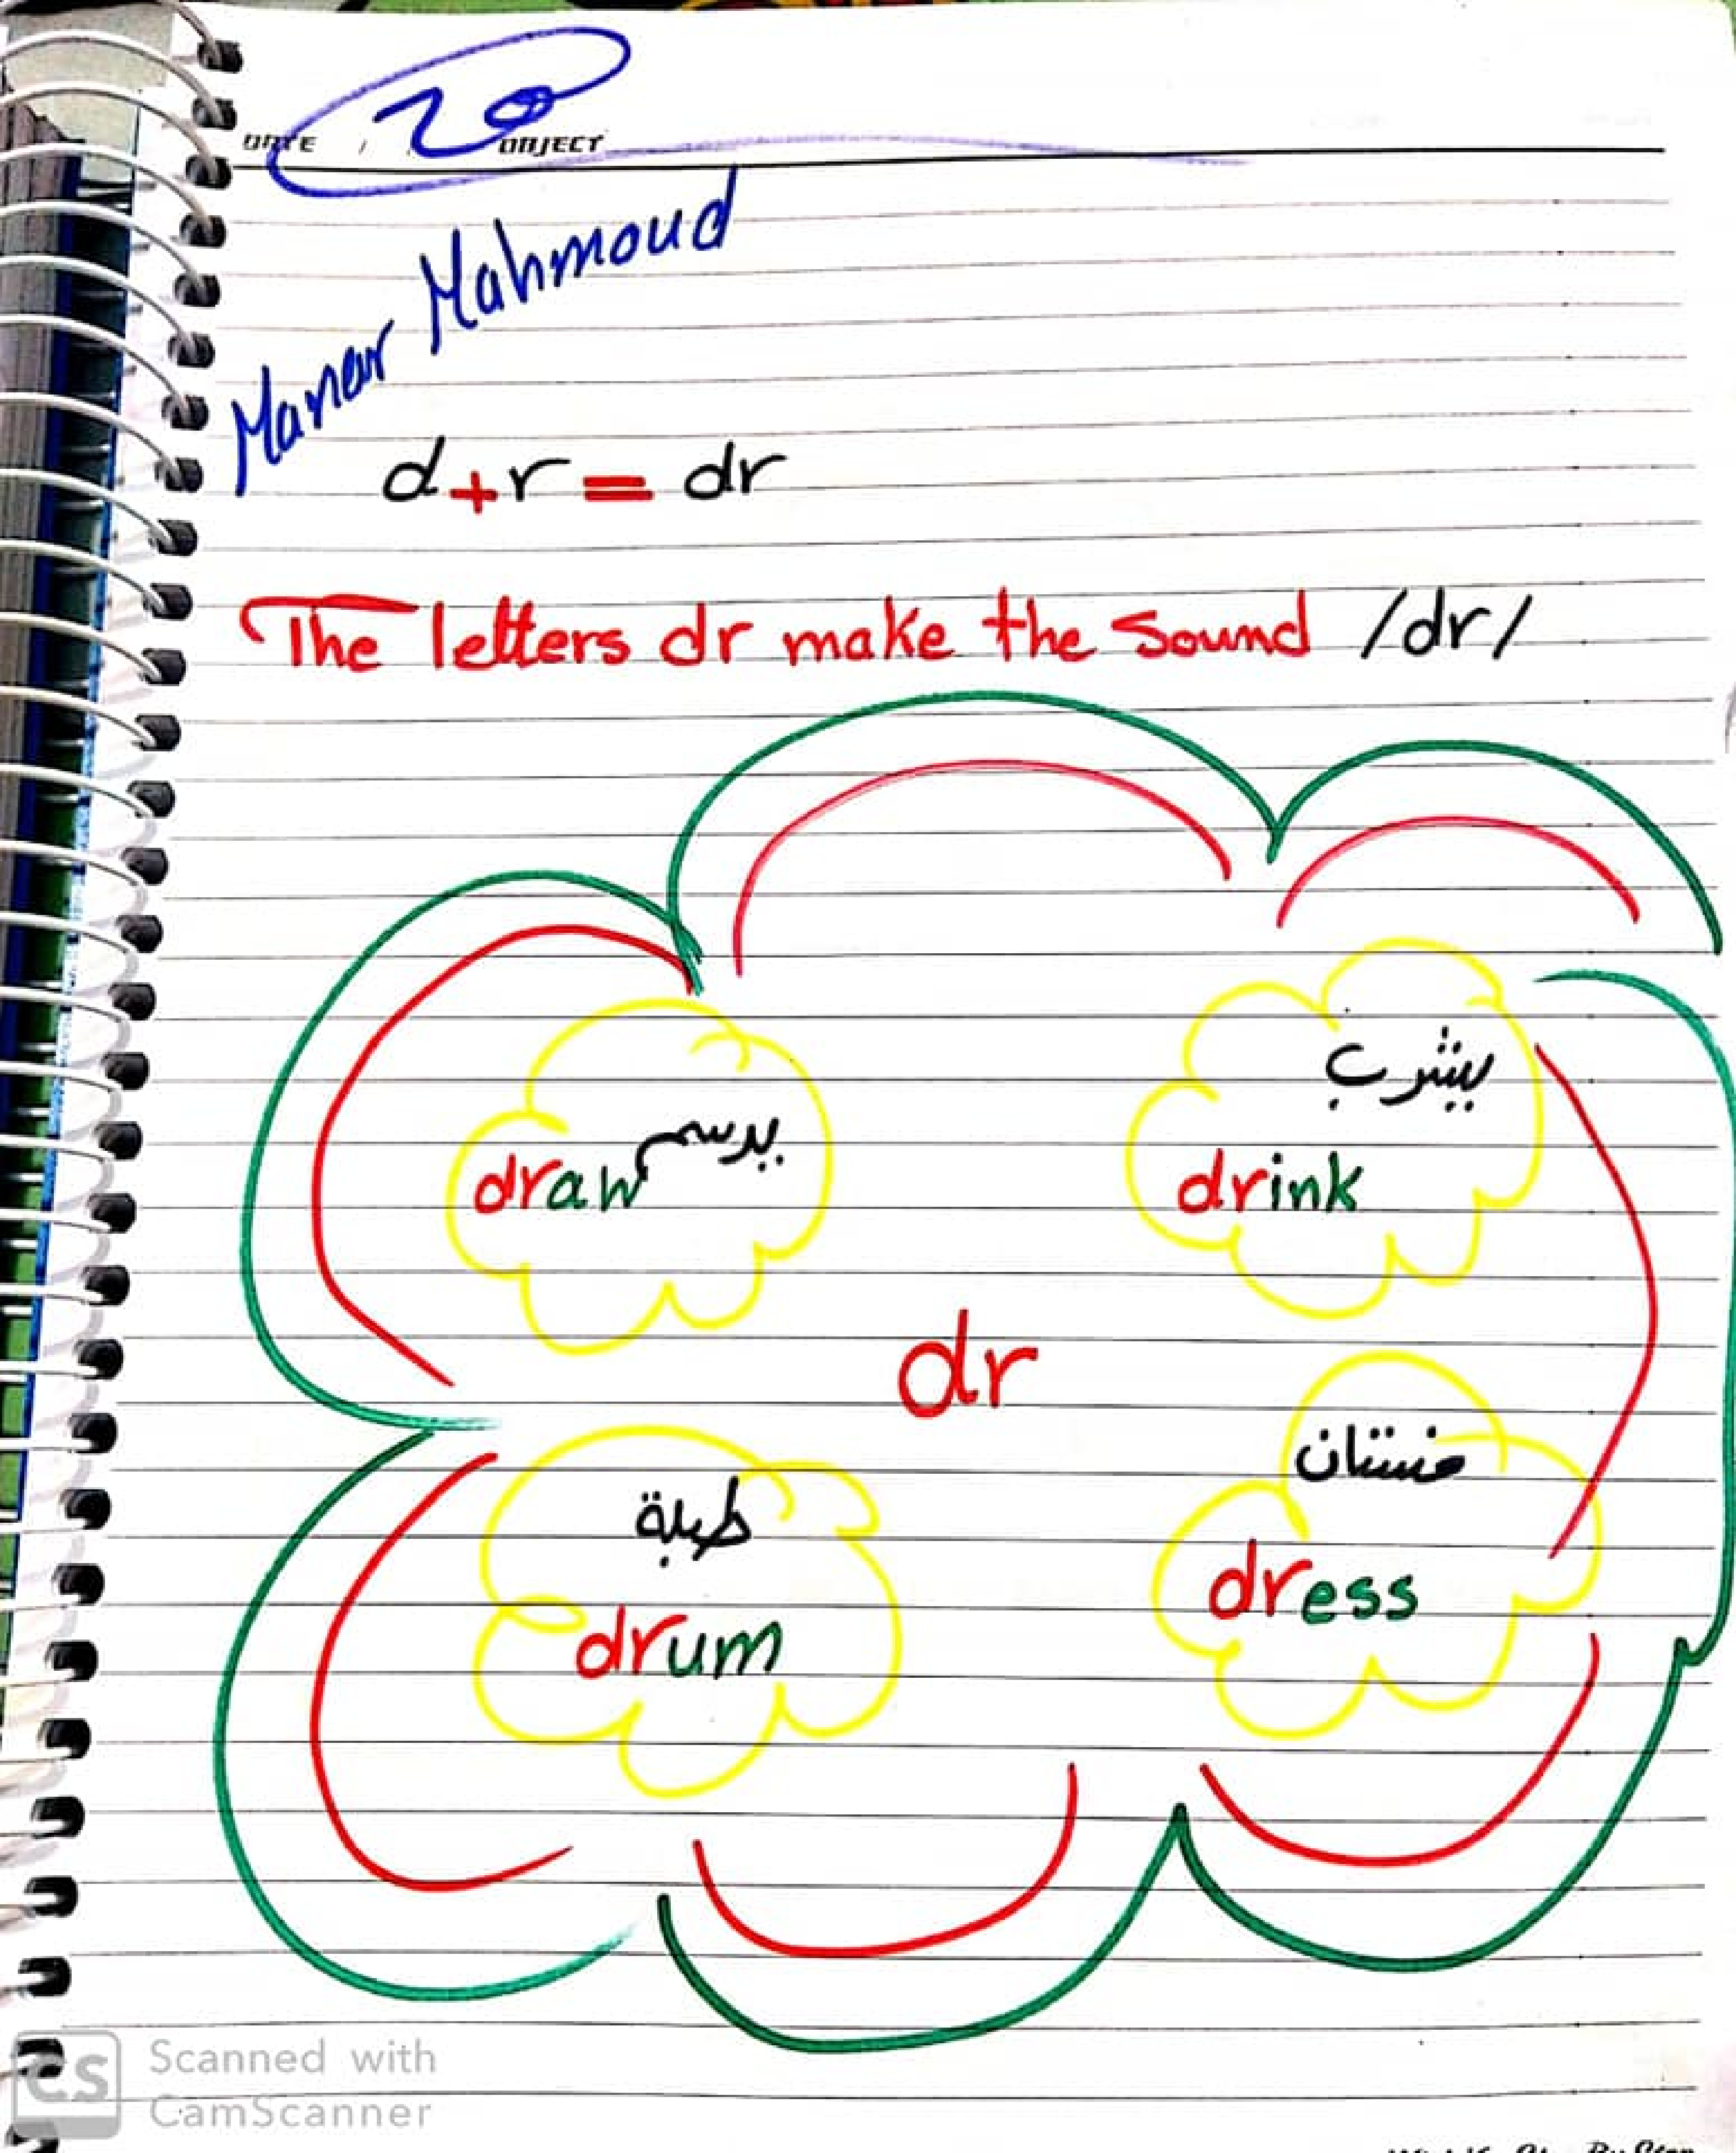 20
DATE / / OBJECT
Manar Mahmoud
d+r = dr
The letters dr make the sound /dr/
يرسم
draw
يشرب
drink
dr
طبلة
drum
فستان
dress
CS Scanned with
CamScanner
By Step